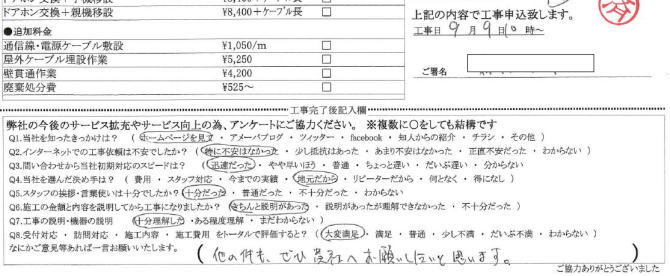 ドアホン交換＋親機移設 ¥8,400＋ケーブル長 □
上記の内容で工事申込致します。
工事日 9月9日 10時～
●追加料金
通信線・電源ケーブル敷設 ¥1,050/m □
屋外ケーブル埋設作業 ¥5,250 □
壁貫通作業 ¥4,200 □
廃棄処分費 ¥525～ □
ご署名
工事完了後記入欄
弊社の今後のサービス拡充やサービス向上の為、アンケートにご協力ください。 ※複数に〇をしても結構です
Q1.当社を知ったきっかけは？ （ ホームページを見て ・ アメーバブログ ・ ツィッター ・ facebook ・ 知人からの紹介 ・ チラシ ・ その他 ）
Q2.インターネットでの工事依頼は不安でしたか？ （ 特に不安はなかった ・ 少し抵抗はあった ・ あまり不安はなかった ・ 正直不安だった ・ わからない ）
Q3.問い合わせから当社初期対応のスピードは？ （ 迅速だった ・ やや早いほう ・ 普通 ・ ちょっと遅い ・ だいぶ遅い ・ 分からない ）
Q4.当社を選んだ決め手は？ （ 費用 ・ スタッフ対応 ・ 今までの実績 ・ 地元だから ・ リピーターだから ・ 何となく ・ 得になし ）
Q5.スタッフの挨拶・言葉使いは十分でしたか？ （ 十分だった ・ 普通だった ・ 不十分だった ・ わからない ）
Q6.施工の金額と内容を説明してから工事になりましたか？ （ きちんと説明があった ・ 説明があったが理解できなかった ・ 不十分だった ）
Q7.工事の説明・機器の説明 （ 十分理解した ・ ある程度理解 ・ まだわからない ）
Q8.受付対応 ・ 訪問対応 ・ 施工内容 ・ 施工費用 をトータルで評価すると？ （ 大変満足 ・ 満足 ・ 普通 ・ 少し不満 ・ だいぶ不満 ・ わからない ）
なにかご意見等あれば一言お願いいたします。 （ 他の件も、ぜひ貴社へお願いしたいと思います。 ）
ご協力ありがとうございました